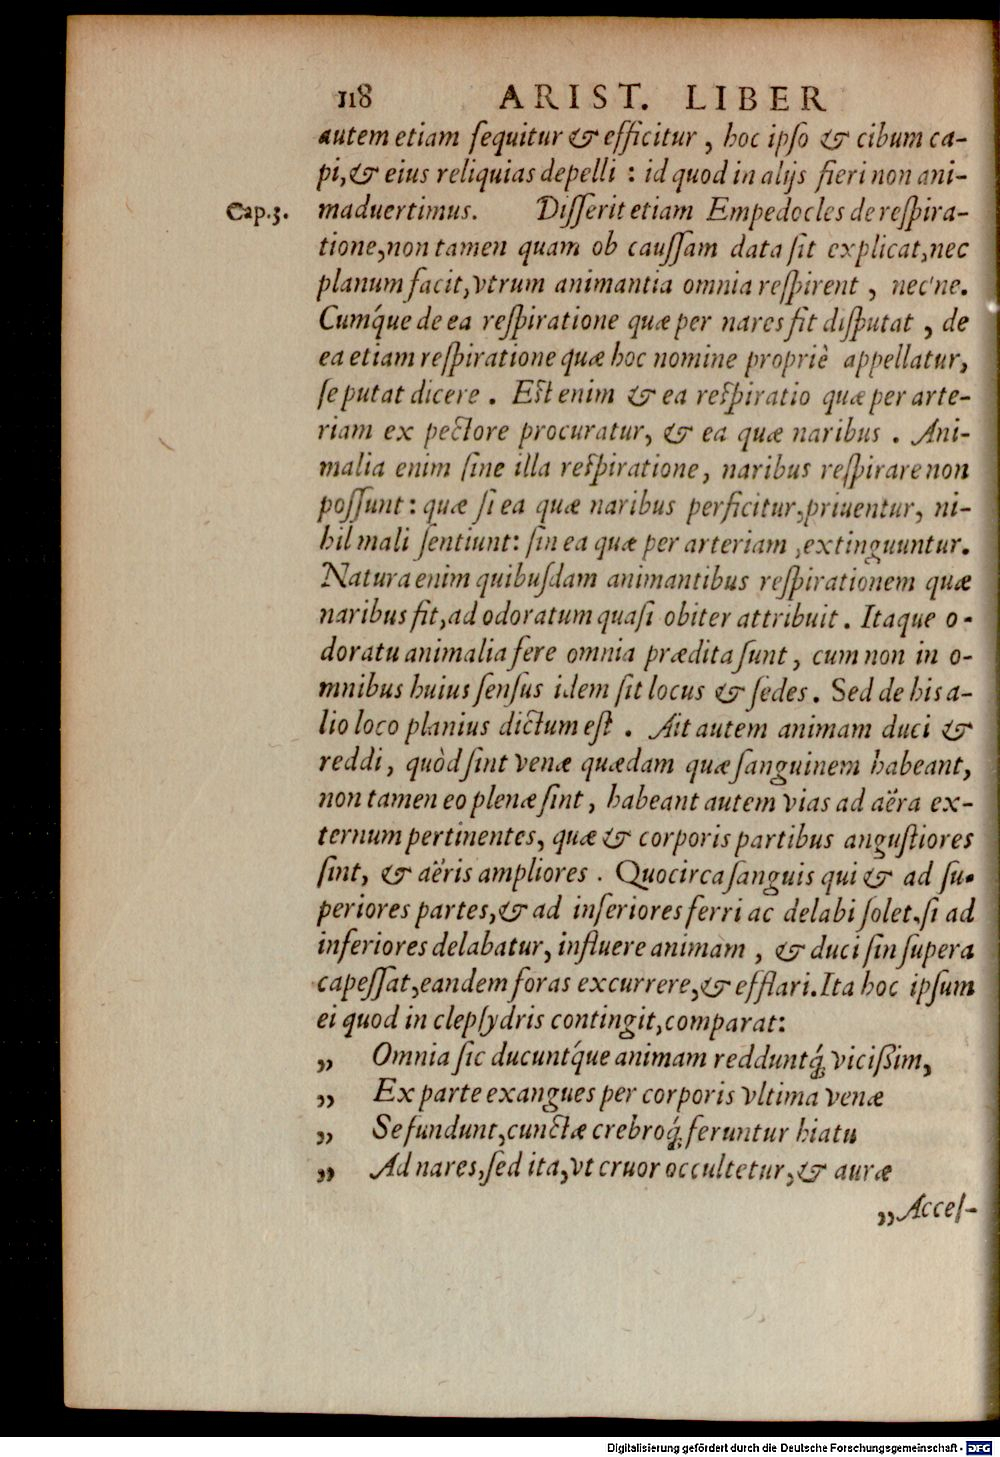 118 ARIST. LIBER
autem etiam ſequitur & efficitur, hoc ipſo & cibum ca-
pi, & eius reliquias depelli : id quod in alijs fieri non ani-
Cap.3. maduertimus. Diſſerit etiam Empedocles de reſpira-
tione, non tamen quam ob cauſſam data ſit explicat, nec
planum facit, vtrum animantia omnia reſpirent, nec'ne.
Cumq́ue de ea reſpiratione quæ per nares fit diſputat, de
ea etiam reſpiratione quæ hoc nomine propriè appellatur,
ſe putat dicere. Eſt enim & ea reſpiratio quæ per arte-
riam ex pectore procuratur, & ea quæ naribus. Ani-
malia enim ſine illa reſpiratione, naribus reſpirare non
poſſunt: quæ ſi ea quæ naribus perficitur, priuentur, ni-
hil mali ſentiunt: ſin ea quæ per arteriam, extinguuntur.
Natura enim quibuſdam animantibus reſpirationem quæ
naribus fit, ad odoratum quaſi obiter attribuit. Itaque o-
doratu animalia fere omnia prædita ſunt, cum non in o-
mnibus huius ſenſus idem ſit locus & ſedes. Sed de his a-
lio loco planius dictum eſt. Ait autem animam duci &
reddi, quòd ſint venæ quædam quæ ſanguinem habeant,
non tamen eo plenæ ſint, habeant autem vias ad aëra ex-
ternum pertinentes, quæ & corporis partibus anguſtiores
ſint, & aëris ampliores. Quocirca ſanguis qui & ad ſu-
periores partes, & ad inferiores ferri ac delabi ſolet, ſi ad
inferiores delabatur, influere animam, & duci ſin ſupera
capeſſat, eandem foras excurrere, & efflari. Ita hoc ipſum
ei quod in clepſydris contingit, comparat:
„ Omnia ſic ducuntq́ue animam redduntq́; vicißim,
„ Ex parte exangues per corporis vltima venæ
„ Se fundunt, cunctæ crebroq́; feruntur hiatu
„ Ad nares, ſed ita, vt cruor occultetur, & auræ
„ Acceſ-
Digitalisierung gefördert durch die Deutsche Forschungsgemeinschaft - DFG